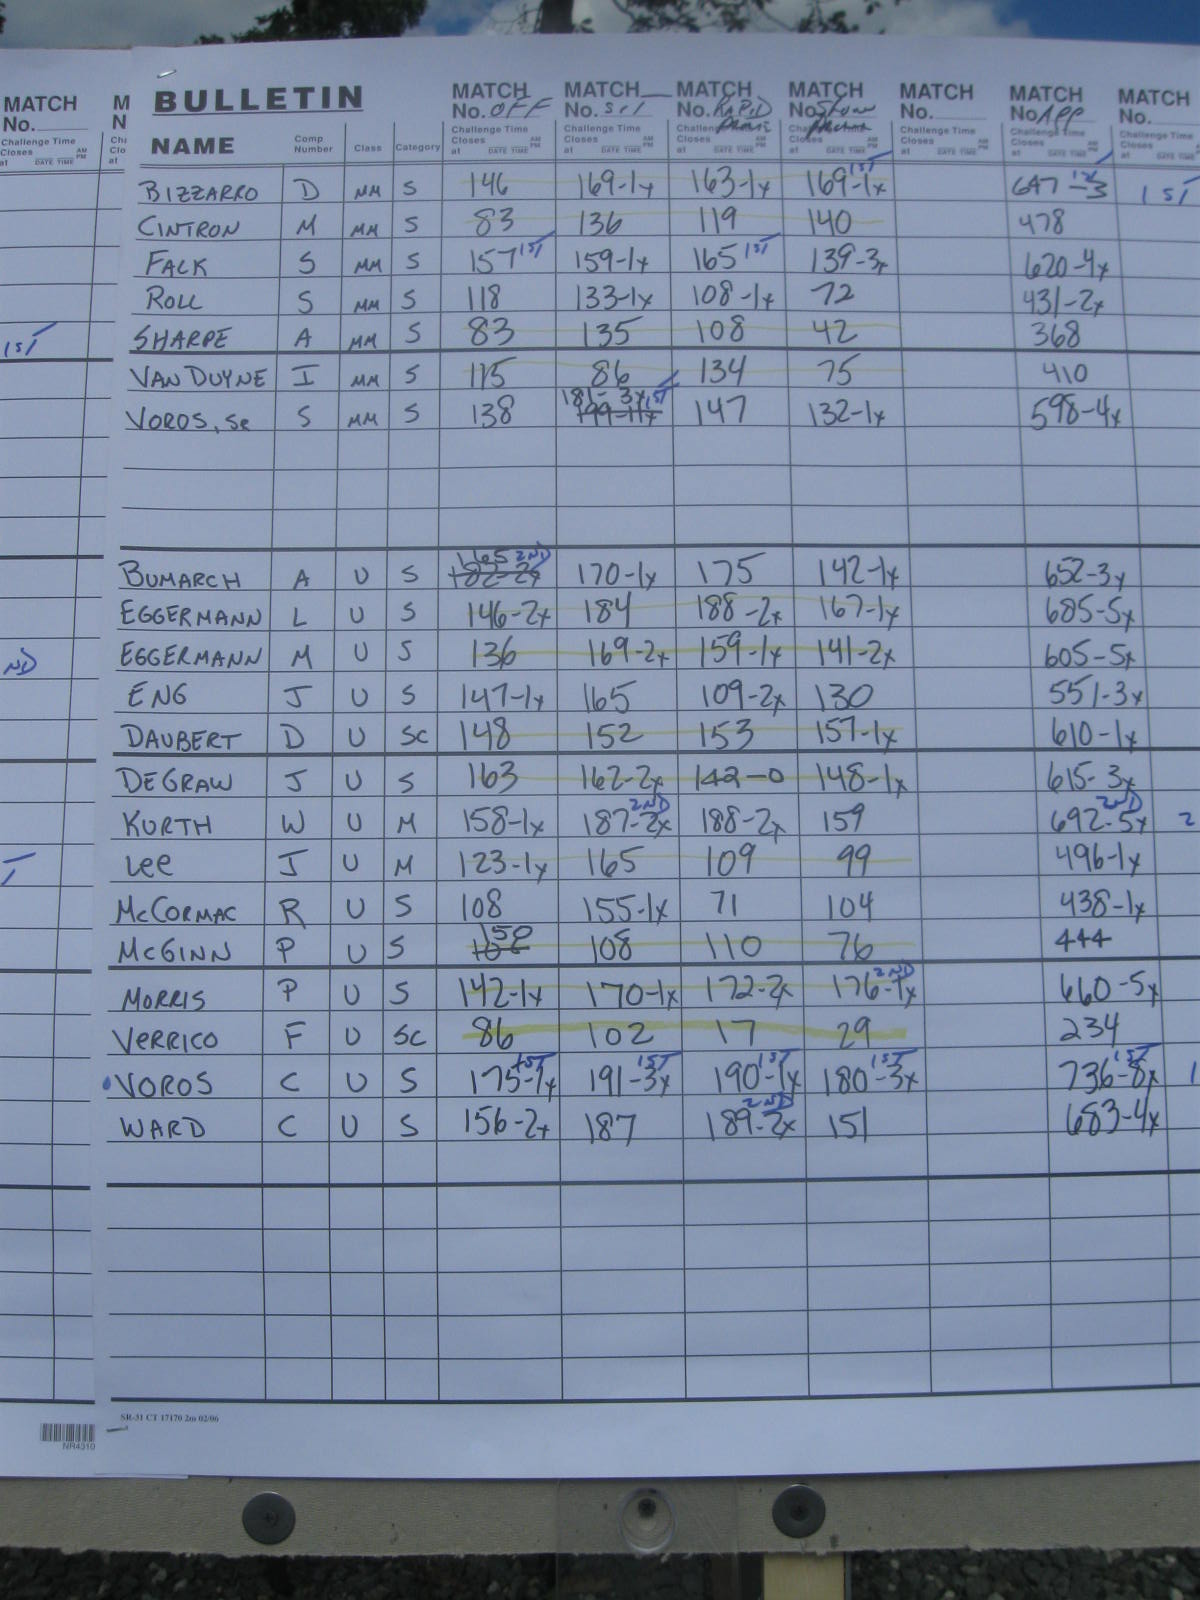 MATCH M BULLETIN MATCH MATCH MATCH MATCH MATCH MATCH MATCH
No. N No. OFF No. Sit No. RAPID No. Slow No. No. App No.
Challenge Time Closes at DATE TIME AM PM
NAME Comp Number Class Category Challenge Time Closes at DATE TIME AM PM
BIZZARRO D MM S 146 169-1x 163-1x 169-1x 1ST 647-3 1ST 1ST
CINTRON M MM S 83 136 119 140 478
FALK S MM S 157 1ST 159-1x 165 1ST 139-3x 620-4x
ROLL S MM S 118 133-1x 108-1x 72 431-2x
1ST SHARPE A MM S 83 135 108 42 368
VAN DUYNE I MM S 115 86 134 75 410
VOROS, SR S MM S 138 181-3x 1ST 199-11x 147 132-1x 598-4x
BUMARCH A U S 165 2ND 182-2x 170-1x 175 142-1x 652-3x
EGGERMANN L U S 146-2x 184 188-2x 167-1x 685-5x
ND EGGERMANN M U S 136 169-2x 159-1x 141-2x 605-5x
ENG J U S 147-1x 165 109-2x 130 551-3x
DAUBERT D U SC 148 152 153 157-1x 610-1x
DEGRAW J U S 163 162-2x 142-0 148-1x 615-3x
KURTH W U M 158-1x 187-2x 2ND 188-2x 159 692-5x 2ND 2
Lee J U M 123-1x 165 109 99 496-1x
McCORMAC R U S 108 155-1x 71 104 438-1x
McGINN P U S 150 108 110 76 444
MORRIS P U S 142-1x 170-1x 172-2x 176-1x 2ND 660-5x
VERRICO F U SC 86 102 17 29 234
VOROS C U S 175-1x 1ST 191-3x 1ST 190-1x 1ST 180-3x 1ST 736-8x 1ST 1
WARD C U S 156-2x 187 189-2x 2ND 151 683-4x
SR-31 CT 17170 2m 02/06
NR4310